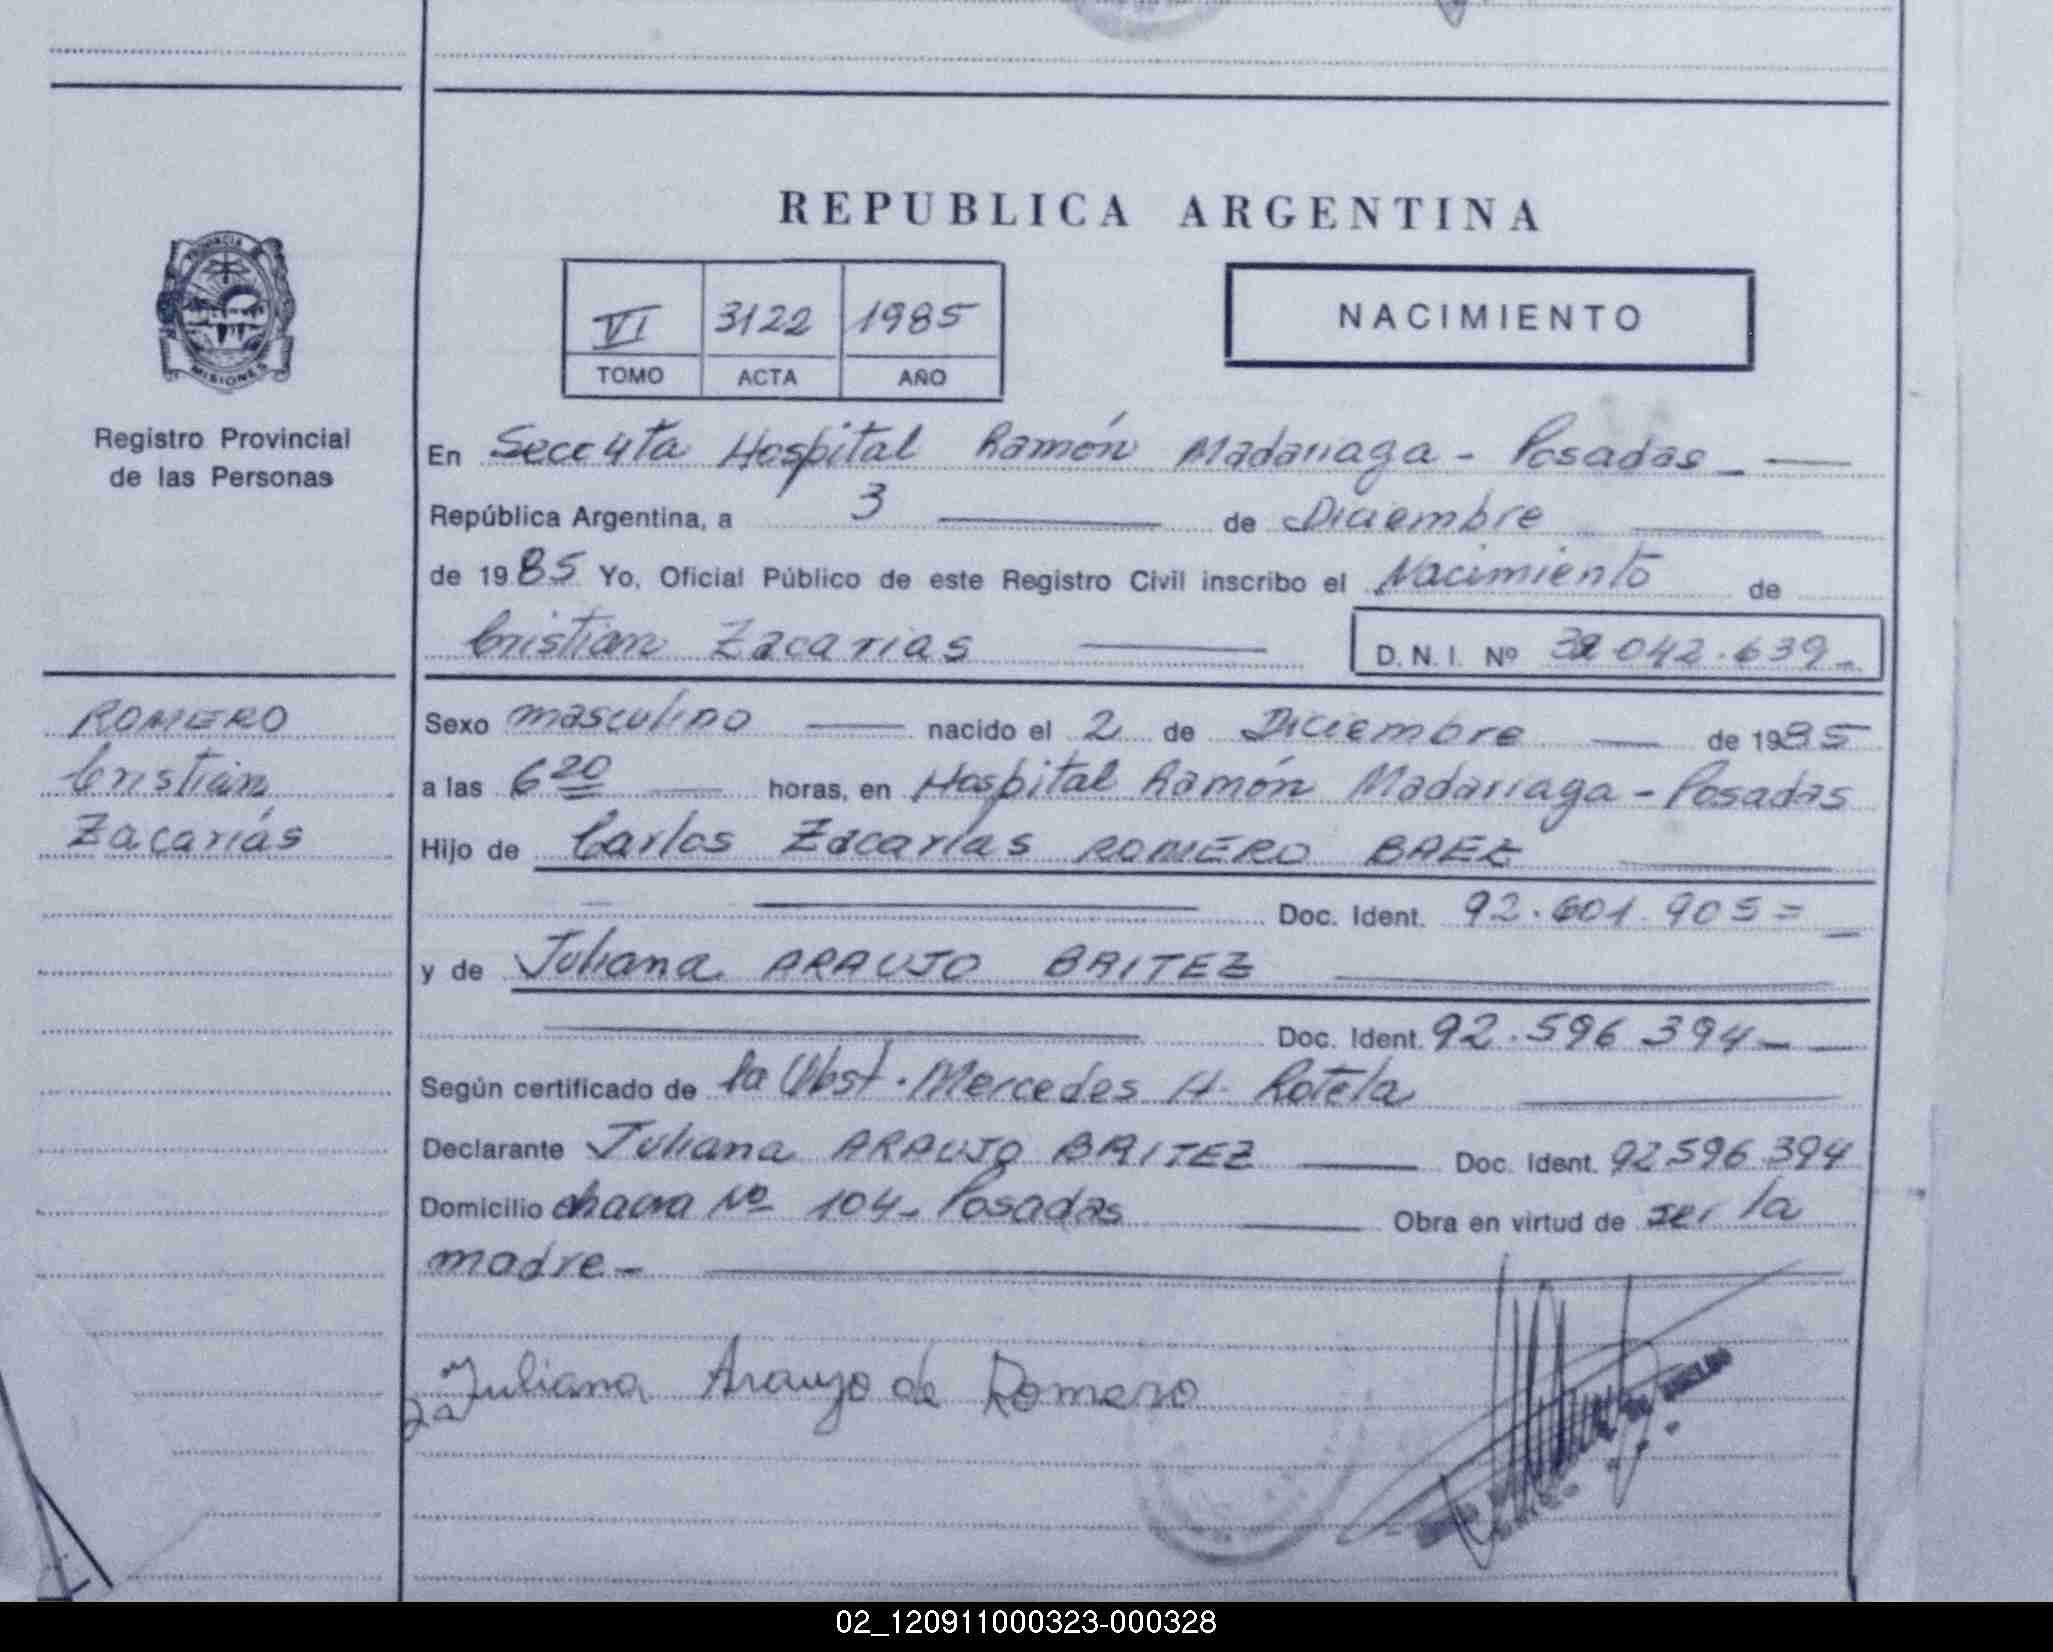 REPUBLICA ARGENTINA
PROVINCIA DE
MISIONES
VI 3122 1985
TOMO ACTA AÑO
NACIMIENTO
Registro Provincial
de las Personas
En Secc 4ta Hospital Ramón Madariaga - Posadas
República Argentina, a 3 de Diciembre
de 1985 Yo, Oficial Público de este Registro Civil inscribo el Nacimiento de
Cristian Zacarias D.N.I. Nº 32.042.639
ROMERO
Cristian
Zacarías
Sexo masculino nacido el 2 de Diciembre de 1985
a las 6 20 horas, en Hospital Ramón Madariaga - Posadas
Hijo de Carlos Zacarías ROMERO BAEZ
Doc. Ident. 92.601.905=
y de Juliana ARAUJO BRITEZ
Doc. Ident. 92.596 394
Según certificado de la Obst. Mercedes H. Rotela
Declarante Juliana ARAUJO BRITEZ Doc. Ident. 92596394
Domicilio chacra Nº 104 - Posadas Obra en virtud de ser la
madre-
Juliana Araujo de Romero
02_120911000323-000328